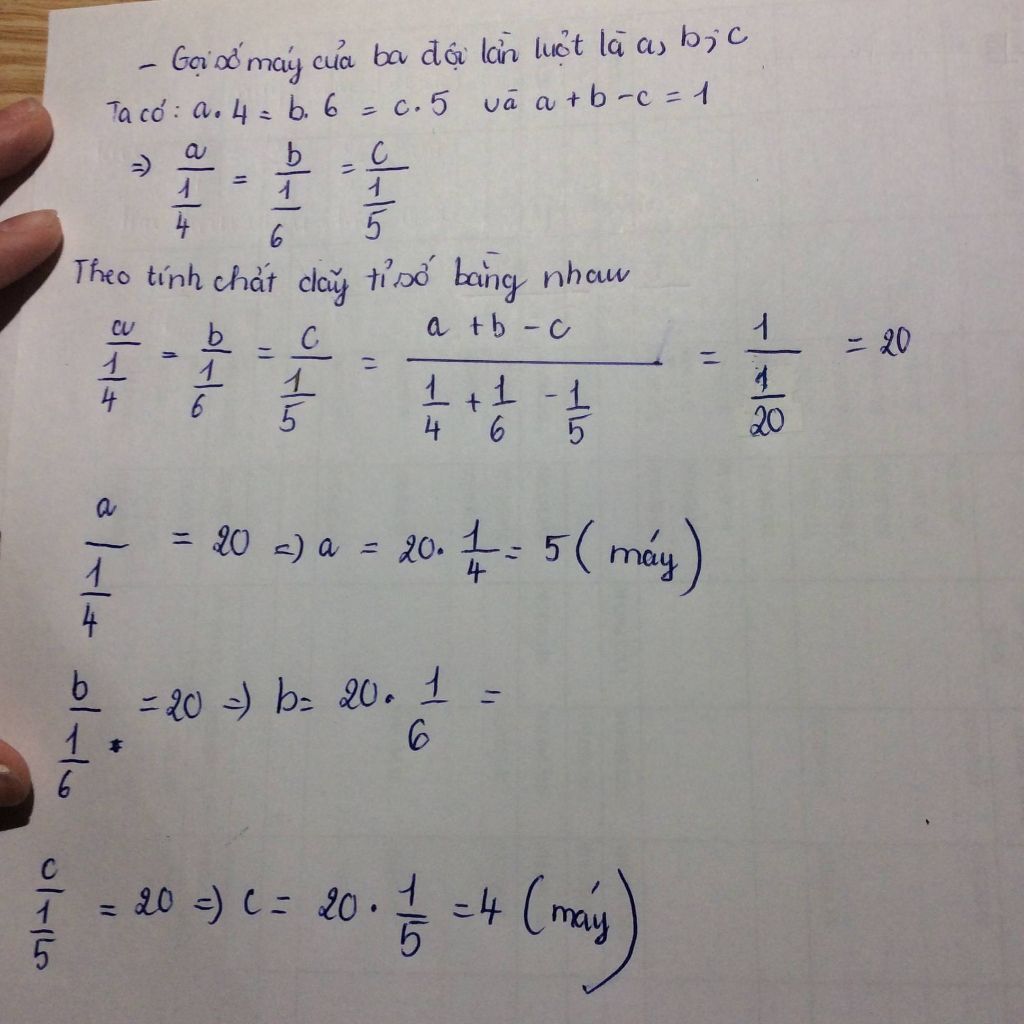 - Gọi số máy của ba đội lần lượt là a, b, c
Ta có: a.4 = b.6 = c.5 và a + b - c = 1
=> a/(1/4) = b/(1/6) = c/(1/5)
Theo tính chất dãy tỉ số bằng nhau
a/(1/4) = b/(1/6) = c/(1/5) = (a + b - c)/(1/4 + 1/6 - 1/5) = 1/(1/20) = 20
a/(1/4) = 20 => a = 20 . 1/4 = 5 (máy)
b/(1/6) = 20 => b = 20 . 1/6 =
c/(1/5) = 20 => c = 20 . 1/5 = 4 (máy)